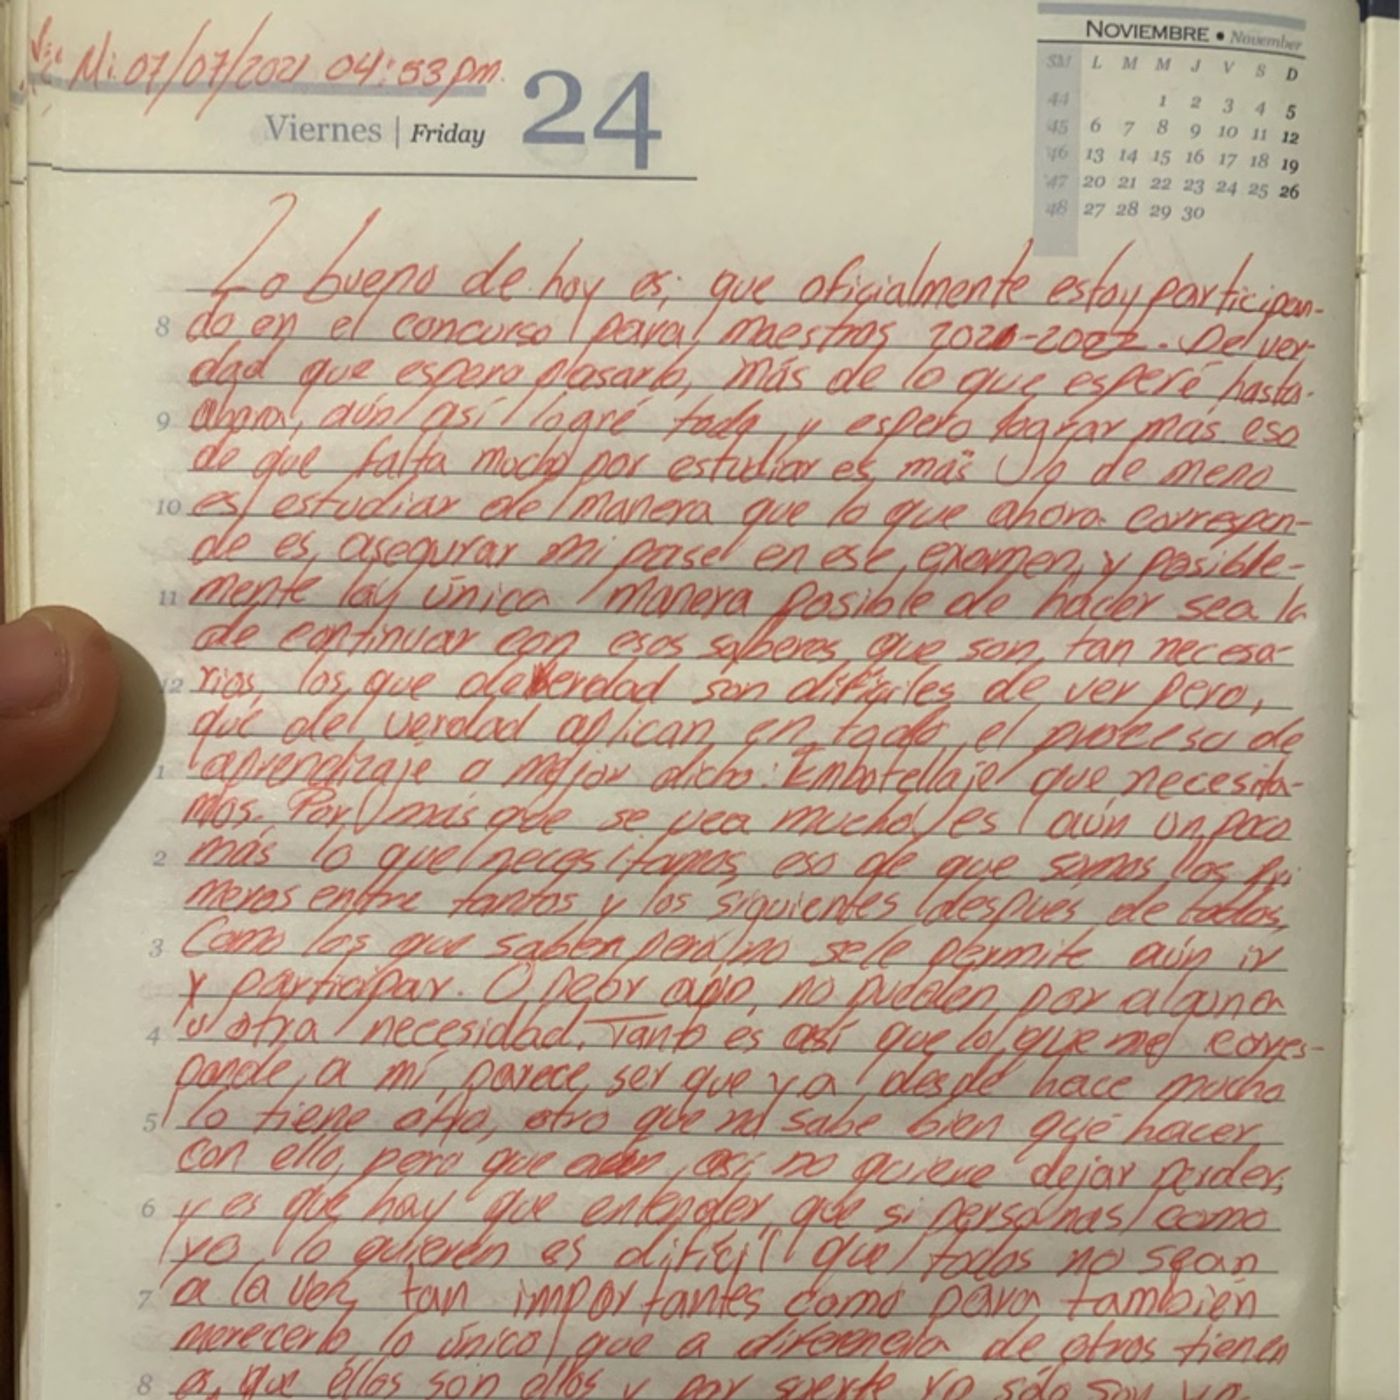 Mi. 07/07/2021 04:53pm.
Viernes | Friday 24
NOVIEMBRE • November
SM L M M J V S D
44 1 2 3 4 5
45 6 7 8 9 10 11 12
46 13 14 15 16 17 18 19
47 20 21 22 23 24 25 26
48 27 28 29 30
Lo bueno de hoy es; que oficialmente estoy participan-
8 do en el concurso para maestros 2021-2022. De ver-
dad que espero pasarlo, más de lo que esperé hasta
9 ahora, aún así logré todo, y espero lograr más eso
de que falta mucho por estudiar es más Un de meno
10 es estudiar de manera que lo que ahora correspon-
de es, asegurar mi pase en ese, examen, y posible-
11 mente la única manera posible de hacer sea la
de continuar con esos saberes que son tan necesa-
12 rios, los que de verdad son difíciles de ver pero,
que del verdad aplican en todo, el proceso de
1 aprendizaje o mejor dicho: Embotellaje que necesita-
mos. Por más que se vea mucho, es aún un poco
2 más lo que necesitamos, eso de que somos los pri
meros entre tantos y los siguientes despues de todos,
3 Como los que saben pero no se le permite aún ir
y participar. O peor aún, no pueden por alguna
4 u otra necesidad. Tanto es así que lo que me corres-
ponde, a mí, parece ser que ya desde hace mucho
5 lo tiene otro, otro que no sabe bien qué hacer
con ello, pero que aún así no quiere dejar perder,
6 y es que hay que entender que si personas como
yo lo quieren es difícil que todos no sean
7 a la vez, tan importantes como para también
merecerlo, lo único que a diferencia de otros tienen
8 es que ellos son ellos y por suerte yo sólo soy yo